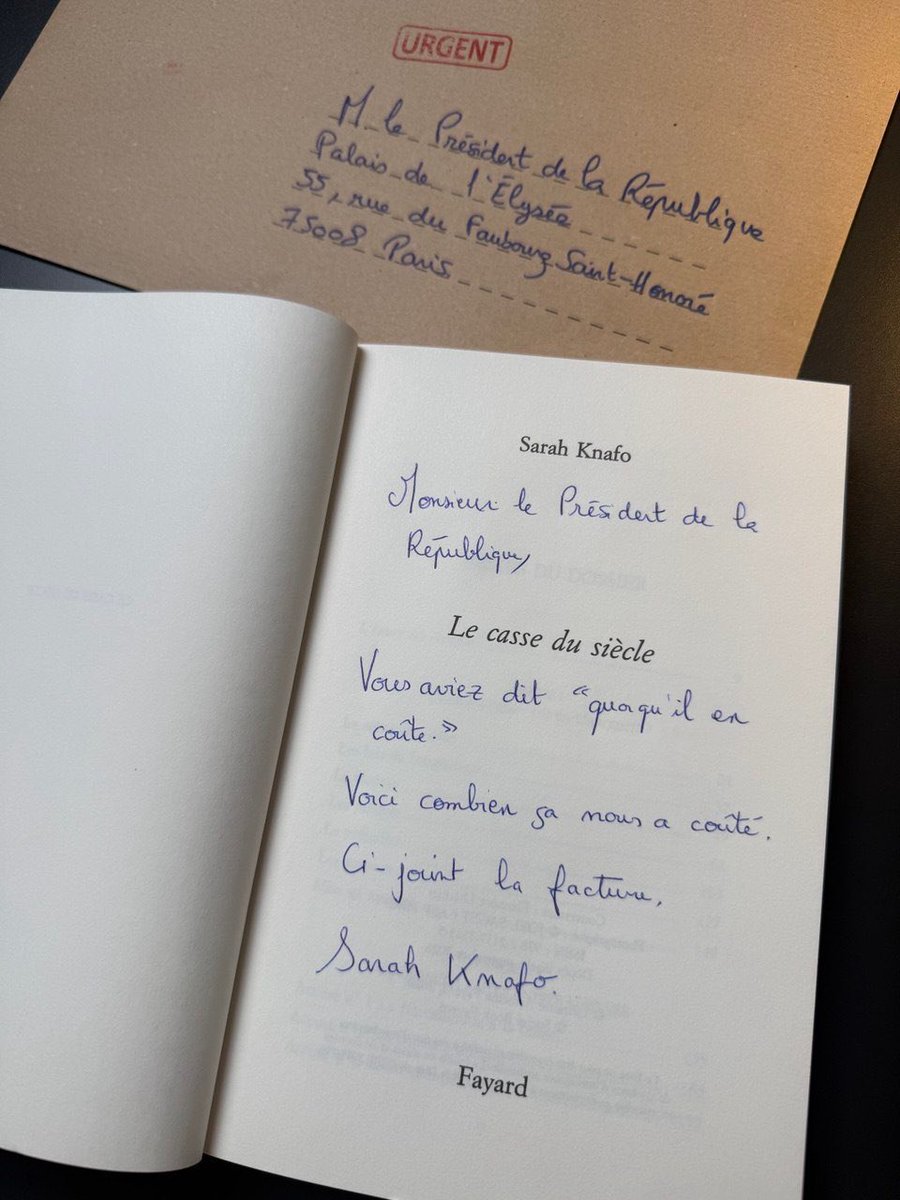 URGENT
M. le Président de la République
Palais de l'Élysée
55, rue du Faubourg Saint-Honoré
75008 Paris
Sarah Knafo
Monsieur le Président de la
République,
Le casse du siècle
Vous aviez dit "quoqu'il en
coûte.»
Voici combien ça nous a coûté.
Ci-joint la facture,
Sarah Knafo.
Fayard